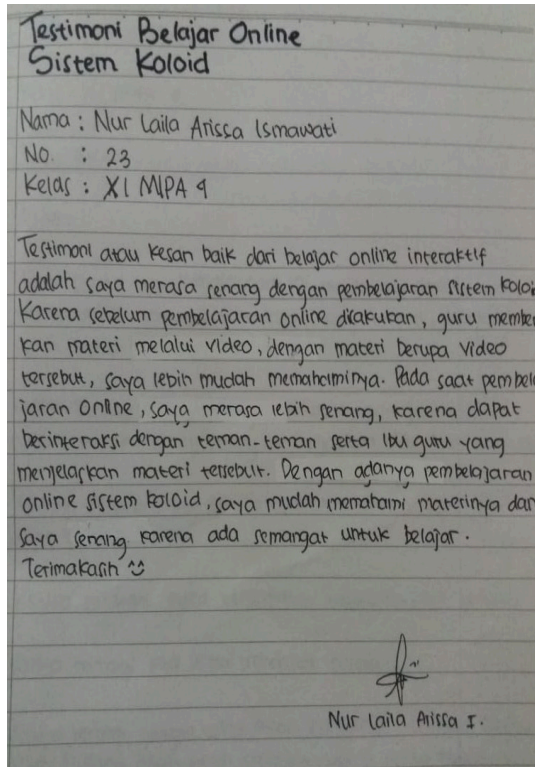 Testimoni Belajar Online
Sistem Koloid
Nama : Nur Laila Arissa Ismawati
No. : 23
Kelas : XI MIPA 4
Testimoni atau kesan baik dari belajar online interaktif
adalah saya merasa senang dengan pembelajaran sistem koloi
Karena sebelum pembelajaran online dilakukan, guru membe
kan materi melalui video, dengan materi berupa video
tersebut, saya lebih mudah memahaminya. Pada saat pembel
jaran online, saya merasa lebih senang, karena dapat
berinteraksi dengan teman-teman serta Ibu guru yang
menjelaskan materi tersebut. Dengan adanya pembelajaran
online sistem koloid, saya mudah memahami materinya dan
saya senang karena ada semangat untuk belajar.
Terimakasih
Nur Laila Arissa I.